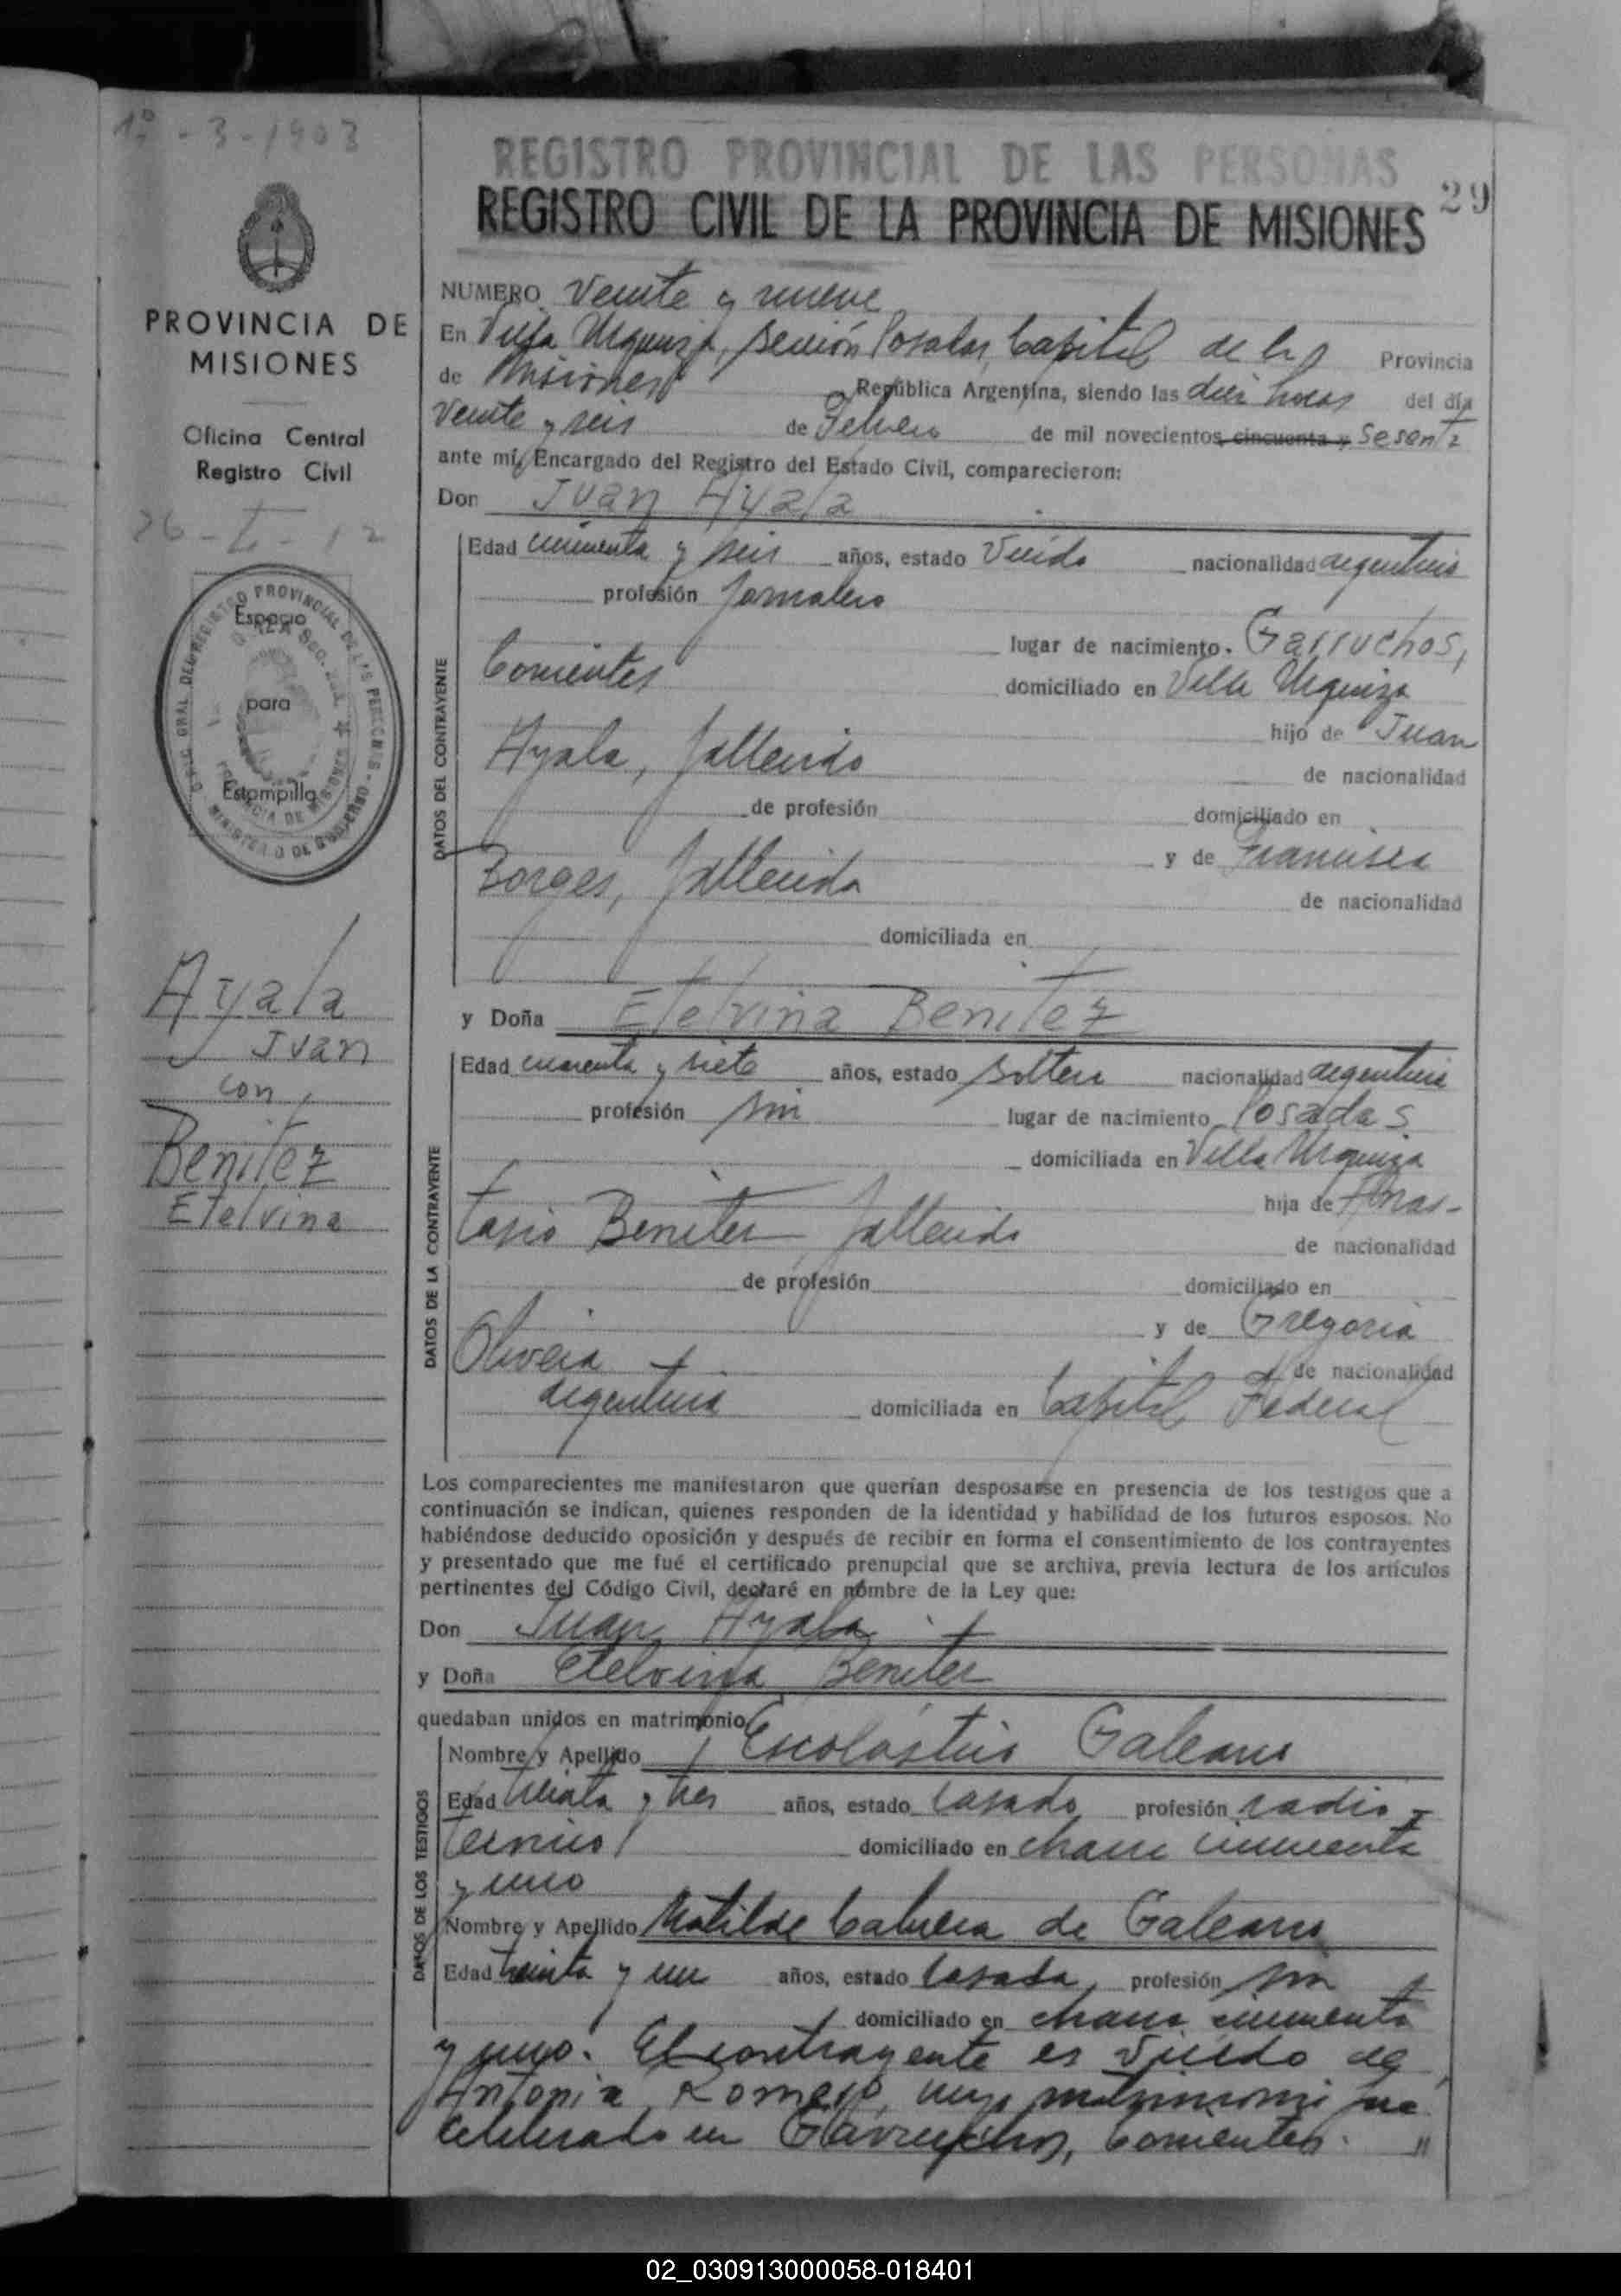 1º - 3 - 1903
REGISTRO PROVINCIAL DE LAS PERSONAS
REGISTRO CIVIL DE LA PROVINCIA DE MISIONES
29
PROVINCIA DE
MISIONES
Oficina Central
Registro Civil
Espacio
para
Estampilla
Ayala
Juan
con
Benitez
Etelvina
NUMERO Veinte y nueve
En Villa Urquiza, sección Posadas, Capital de la Provincia
de Misiones República Argentina, siendo las diez horas del día
Veinte y seis de Febrero de mil novecientos cincuenta y Sesenta
ante mí, Encargado del Registro del Estado Civil, comparecieron:
Don Juan Ayala
DATOS DEL CONTRAYENTE
Edad cincuenta y seis años, estado Viudo nacionalidad argentino
profesión Jornalero
lugar de nacimiento. Garruchos,
Corrientes domiciliado en Villa Urquiza
hijo de Juan
Ayala, fallecido de nacionalidad
de profesión domiciliado en
y de Francisca
Borges, fallecida de nacionalidad
domiciliada en
y Doña Etelvina Benitez
DATOS DE LA CONTRAYENTE
Edad cuarenta y siete años, estado soltera nacionalidad argentina
profesión sin lugar de nacimiento Posadas
domiciliada en Villa Urquiza
hija de Anas-
tasio Benitez, fallecido de nacionalidad
de profesión domiciliado en
y de Gregoria
Oliveira de nacionalidad
argentina domiciliada en Capital Federal
Los comparecientes me manifestaron que querían desposarse en presencia de los testigos que a
continuación se indican, quienes responden de la identidad y habilidad de los futuros esposos. No
habiéndose deducido oposición y después de recibir en forma el consentimiento de los contrayentes
y presentado que me fué el certificado prenupcial que se archiva, previa lectura de los artículos
pertinentes del Código Civil, declaré en nombre de la Ley que:
Don Juan Ayala
y Doña Etelvina Benitez
quedaban unidos en matrimonio
DATOS DE LOS TESTIGOS
Nombre y Apellido Escolástico Galeano
Edad treinta y tres años, estado casado profesión radio-
tecnico domiciliado en chacra cincuenta
y uno
Nombre y Apellido Matilde Cabrera de Galeano
Edad treinta y un años, estado casada, profesión sin
domiciliado en chacra cincuenta
y uno. El contrayente es viudo de
Antonia Romero, cuyo matrimonio fue
celebrado en Garruchos, Corrientes.
02_030913000058-018401